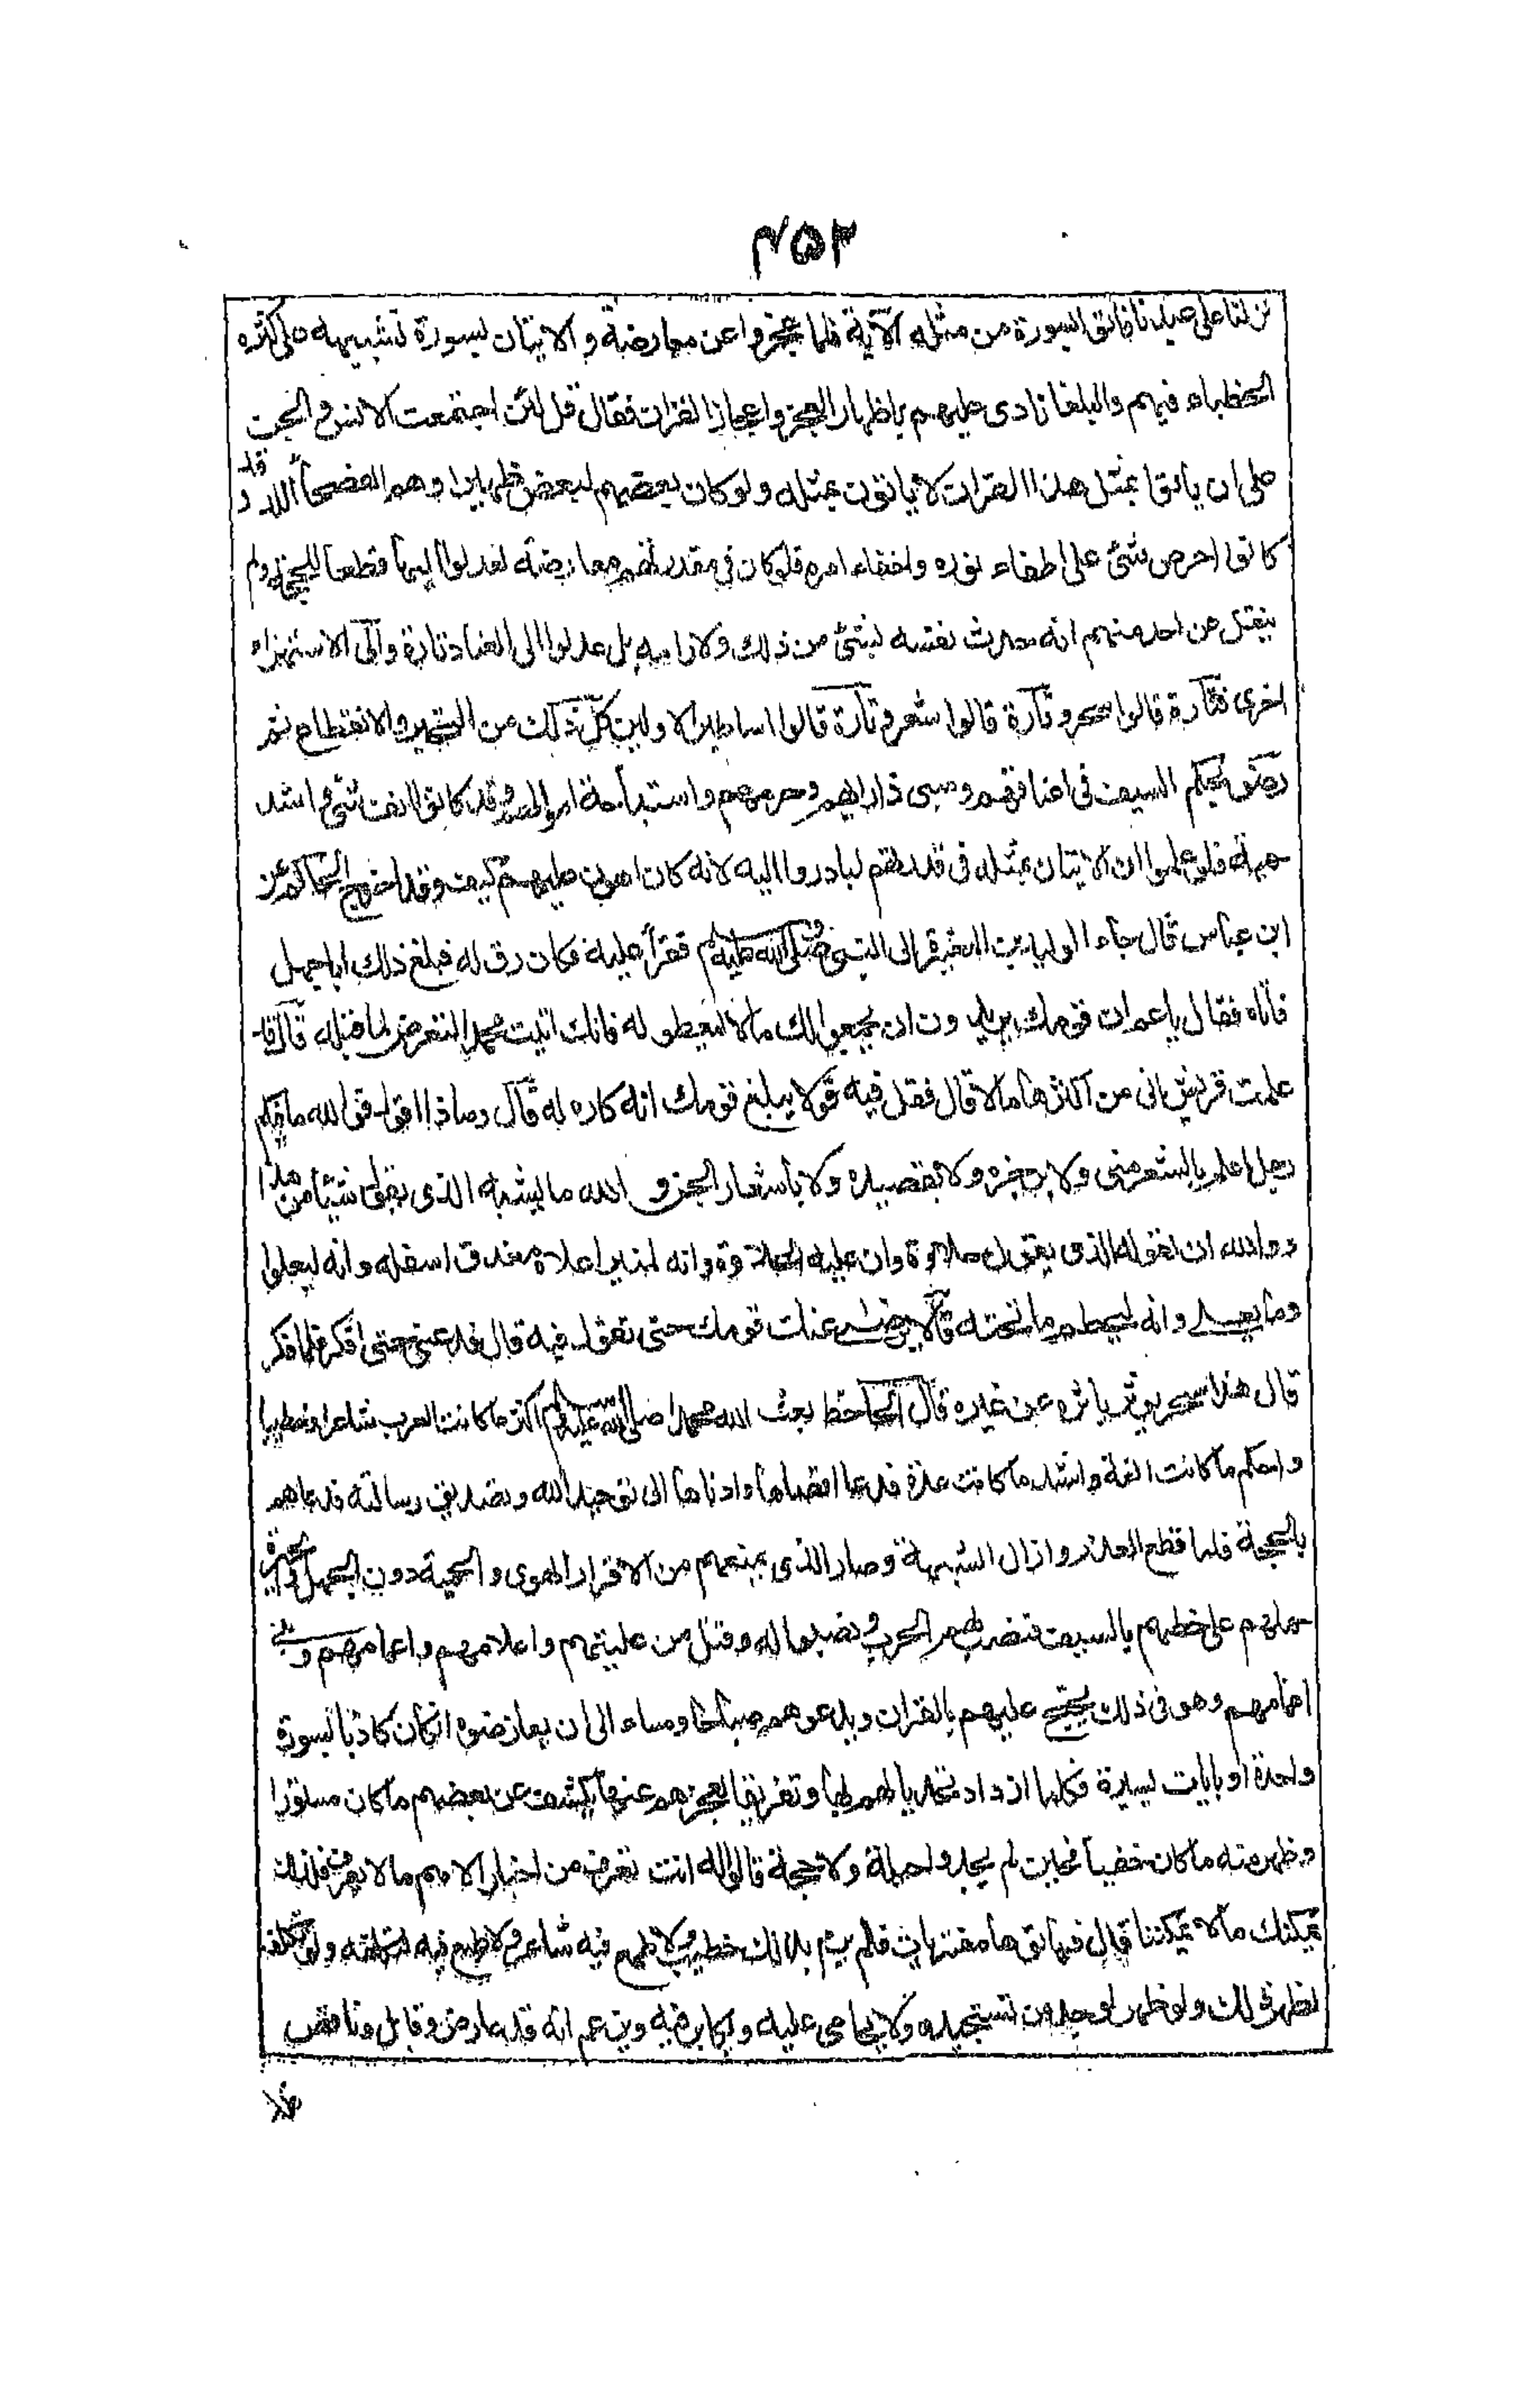 ۴۵۳
نزلنا على عبدنا فاتوا بسورة من مثله الآية فلما عجزوا عن معارضة والاتيان بسورة تشبيهه على كثرة
الخطباء فيهم والبلغا نادى عليهم باظهار العجز واعجاز القران فقال قل لئن اجتمعت الانس والجن
على ان ياتوا بمثل هذا القران لا ياتون بمثله ولو كان بعضهم لبعض ظهيرا وهم الفصحاء اللد وقد
كانوا احرص شئ على اطفاء نوره واخفاء امره فلو كان فى مقدرتهم معارضته لعدلوا اليها قطعا للحجة ولم
ينقل عن احد منهم انه حدث نفسه بشئ من ذلك ولا رامه بل عدلوا الى العناد تارة والى الاستهزاء
اخرى فتارة قالوا سحر وتارة قالوا شعر وتارة قالوا اساطير الاولين كل ذلك من التحير والانقطاع ثم
رضوا بتحكيم السيف فى اعناقهم وسبى ذراريهم وحرمهم واستباحة اموالهم وقد كانوا انف شئ واشد
حمية فلو علموا ان الاتيان بمثله فى قدرتهم لبادروا اليه لانه كان اهون عليهم كيف وقد اخرج الحاكم عن
ابن عباس قال جاء الوليد بن المغيرة الى النبى صلى الله عليه وسلم فقرأ عليه فكان رق له فبلغ ذلك ابا جهل
فاتاه فقال يا عم ان قومك يريدون ان يجمعوا لك مالا ليعطوه له فانك اتيت محمدا لتعرض لما قبله قال قد
علمت قريش انى من اكثرها مالا قال فقل فيه قولا يبلغ قومك انه كاره له قال وماذا اقول فوالله ما فيكم
رجل اعلم بالشعر منى ولا برجزه ولا بقصيده ولا باشعار الجن والله ما يشبه الذى يقول شيئا من هذا
ووالله ان لقوله الذى يقول حلاوة وان عليه لطلاوة وانه لمنير اعلاه مغدق اسفله وانه ليعلوا
وما يعلى وانه ليحطم ما تحته قال لا يرضى عنك قومك حتى تقول فيه قال فدعنى حتى افكر فلما فكر
قال هذا سحر يؤثر ياثره عن غيره قال الجاحظ بعث الله محمدا صلى الله عليه وسلم اكثر ما كانت العرب شاعرا وخطيبا
واحكم ما كانت الغة واشد ما كانت عدة فدعا اقصاها وادناها الى توحيد الله وتصديق رسالته فدعاهم
بالحجة فلما قطع العذر وازال الشبهة وصار الذى يمنعهم من الاقرار الهوى والحمية دون الجهل والحيرة
حملهم على حظهم بالسيف فنصب لهم الحرب ونصبوا له وقتل من عليتهم واعلامهم واعمامهم وبنى
اعمامهم وهو فى ذلك يحتج عليهم بالقران ويدعوهم صباحا ومساء الى ان يعارضوه ان كان كاذبا بسورة
واحدة او بايات يسيرة فكلما ازداد تحديا لهم بها وتقريعا لعجزهم عنها تكشف عن بعضهم ما كان مستورا
وظهر منه ما كان خفيا فحين لم يجدوا حيلة ولا حجة قالوا له انت تعرف من اخبار الامم ما لا نعرف فلذلك
يمكنك مالا يمكننا قال فهاتوها مفتريات فلم يرم بذلك خطيب ولا طمع فيه شاعر ولا طبع فيه لتكلفه ولو تكلفه
لظهر ذلك ولو ظهر لوجد من يستجيده ولا يحامى عليه ويكابر فيه ويزعم انه قد عارض وقابل وناقض